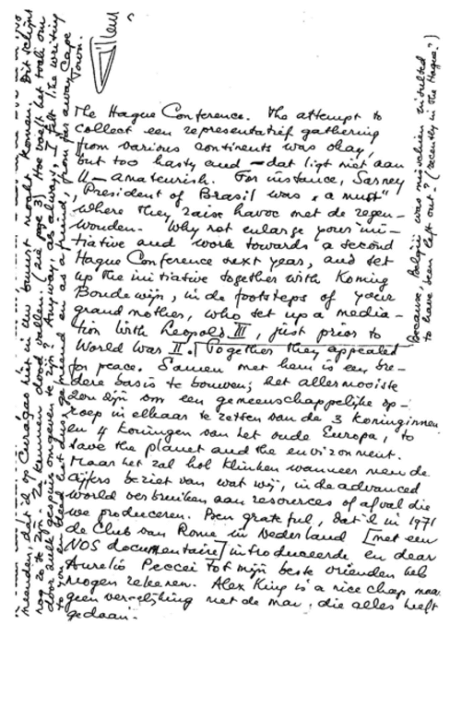 The Hague Conference. The attempt to
collect een representatief gathering
from various continents was okay,
but too hasty and – dat ligt niet aan
U – amateurish. For instance, Sarney
President of Brasil was „a must"
where they raise havoc met de regen-
wouden. Why not enlarge your ini-
tiative and work towards a second
Hague Conference next year, and set
up the initiative together with Koning
Boudewijn, in de footsteps of your
grandmother, who set up a media-
tion with Leopold III, just prior to
World War II. Together they appealed
for peace. Samen met hem is een bre-
dere basis te bouwen; het allermooiste
zou zijn om een gemeenschappelijke op-
roep in elkaar te zetten van de 3 koninginnen
en 4 koningen van het oude Europa, to
save the planet and the environment.
Maar het zal hol klinken wanneer men de
cijfers beziet van wat wij, in de advanced
world verbruiken aan resources of afval die
we produceren. Ben grateful, dat ik in 1971
de Club van Rome in Nederland [met een
NOS documentaire] introduceerde en dear
Aurelio Peccei tot mijn beste vrienden heb
mogen rekenen. Alex King is a nice chap maar
geen vergelijking met de man, die alles heeft
gedaan.
Because, België was misvallen insulted
to have been left out? (recently in the Hague?)
door zulk gespuis omgeven te zijn? Anyway, as always, I felt like writing
to you and as a friend, from far away Cape
Town.